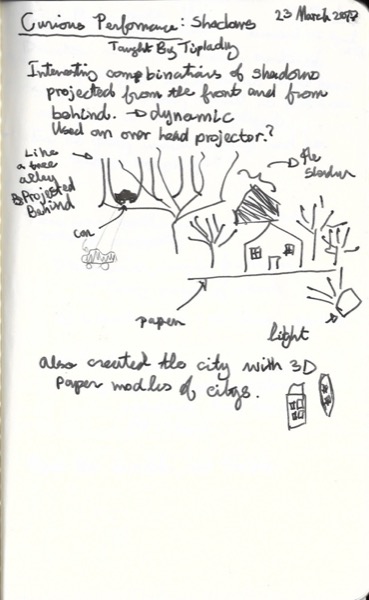 Curious Performance: Shadows
23 March
Taught By Tiplady
Interesting combinations of shadows
projected from the front and from
behind. → dynamic
Used an over head projector?
Like
a tree
alley
Projected
Behind
the
car
paper
light
also created the city with 3D
paper modles of citys.